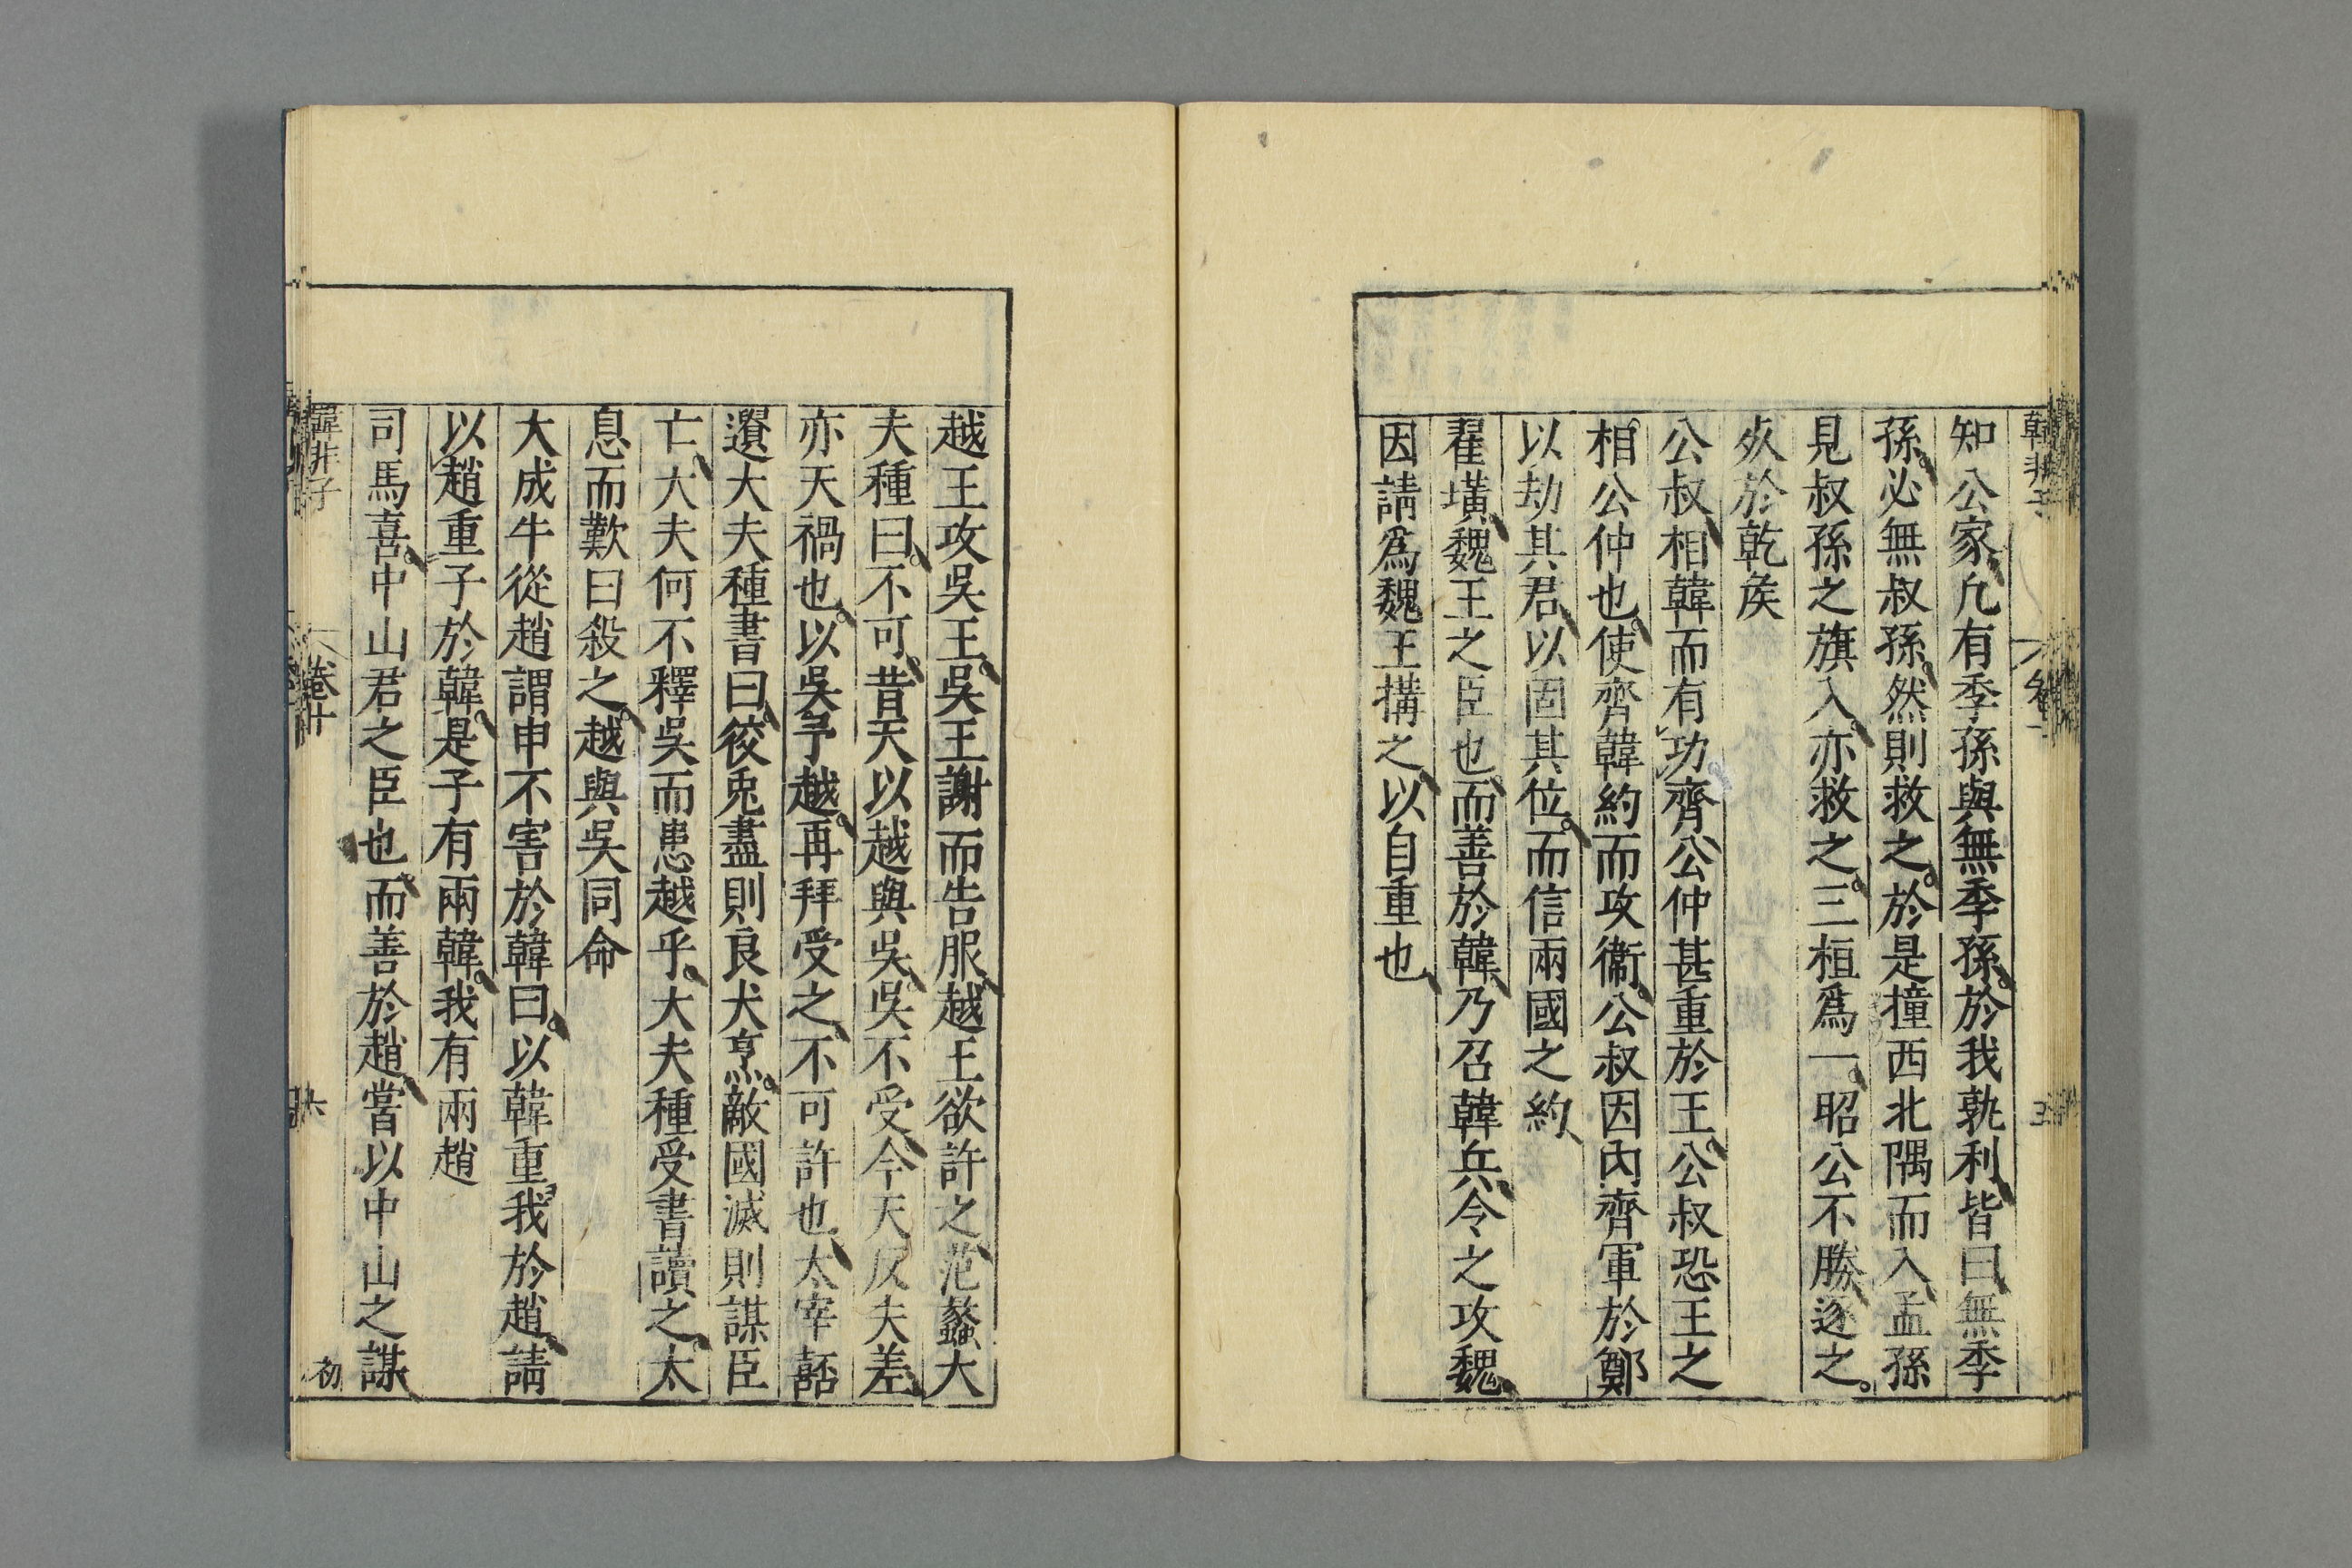 知公家凢有季孫與無季孫於我孰利皆曰無季
孫必無叔孫然則救之於是撞西北隅而入孟孫
見叔孫之旗入亦救之三桓爲一昭公不勝逐之
於乾矦
公叔相韓而有功齊公仲甚重於王公叔恐王之
相公仲也使齊韓約而攻衞公叔因內齊軍於鄭
以劫其君以固其位而信兩國之約
翟璜魏王之臣也而善於韓乃召韓兵令之攻魏
因請爲魏王搆之以自重也
越王攻吳王吳王謝而告服越王欲許之范蠡大
夫種曰不可昔天以越與吳吳不受今天反夫差
亦天禍也以吳予越再拜受之不可許也太宰嚭
遺大夫種書曰狡兎盡則良犬烹敵國滅則謀臣
亡大夫何不釋吳而患越乎大夫種受書讀之太
息而歎曰殺之越與吳同命
大成牛從趙謂申不害於韓曰以韓重我於趙請
以趙重子於韓是子有兩韓我有兩趙
司馬喜中山君之臣也而善於趙嘗以中山之謀
韓非子
卷十
初